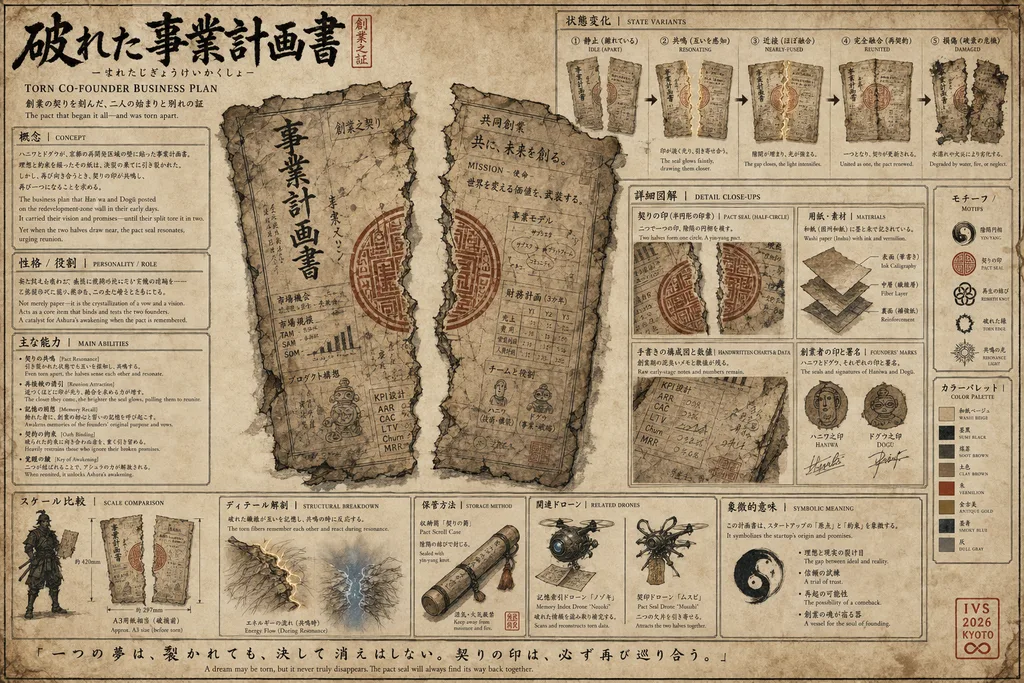 破れた事業計画書
創業之証
TORN CO-FOUNDER BUSINESS PLAN
創業の契りを刻んだ、二人の始まりと別れの証
The pact that began it all—and was torn apart.
概念 | CONCEPT
The business plan that Haniwa and Dogū posted
on the redevelopment-zone wall in their early days.
It carried their vision and promises—until their split tore it in two.
Yet when the two halves draw near, the pact seal resonates,
urging reunion.
性格 / 役割 | PERSONALITY / ROLE
Not merely paper—it is the crystallization of a vow and a vision.
Acts as a core item that binds and tests the two founders.
A catalyst for Ashura's awakening when the pact is remembered.
主な能力 | MAIN ABILITIES
・契りの共鳴 [Pact Resonance]
Even torn apart, the halves sense each other and resonate.
[Reunion Attraction]
The closer they come, the brighter the seal glows, pulling them to reunite.
・記憶の回想 [Memory Recall]
Awakens memories of the founders' original purpose and vows.
・契約の拘束 [Oath Binding]
Heavily restrains those who ignore their broken promises.
・覚醒の鍵 [Key of Awakening]
When reunited, it unlocks Ashura's awakening.
事業計画書
創業之契り
市場機会
市場規模
TAM
SAM
SOM
プロダクト構想
KPI設計
AAR
CAC
LTV
Churn
MRR
共同創業
共に、未来を創る。
MISSION 使命
世界を変える価値を、武装する。
事業モデル
財務計画 (3か年)
チームと役割
ハニワ
ドグウ
状態変化 | STATE VARIANTS
① 静止 (離れている)
IDLE (APART)
② 共鳴 (互いを感知)
RESONATING
③ 近接 (ほぼ融合)
NEARLY-FUSED
④ 完全融合 (再契約)
REUNITED
⑤ 損傷 (破棄の危機)
DAMAGED
印が淡く光り、引き寄せ合う。
The seal glows faintly,
drawing them closer.
隙間が埋まり、光が強まる。
The gap closes, the light intensifies.
一つとなり、契りが更新される。
United as one, the pact renewed.
水濡れや火災により劣化する。
Degraded by water, fire, or neglect.
詳細図解 | DETAIL CLOSE-UPS
契りの印 (半円形の印章) | PACT SEAL (HALF-CIRCLE)
二つで一つの印、陰陽の円相を模す。
Two halves form one circle. A yin-yang pact.
用紙・素材 | MATERIALS
Washi paper (Inshu) with ink and vermilion.
表面 (筆書き)
Ink Calligraphy
中層 (繊維層)
Fiber Layer
裏面 (補強紙)
Reinforcement
手書きの構成図と数値 | HANDWRITTEN CHARTS & DATA
創業期の泥臭いメモと数値が残る。
Raw early-stage notes and numbers remain.
KPI設計
ARR
CAC
LTV
Churn
MRR
創業者の印と署名 | FOUNDERS' MARKS
ハニワとドグウ、それぞれの印と署名。
The seals and signatures of Haniwa and Dogū.
ハニワ之印
HANIWA
ドグウ之印
DOGŪ
モチーフ /
MOTIFS
陰陽円相
YIN-YANG
契りの印
PACT SEAL
再生の結び
REBIRTH KNOT
破れた縁
TORN EDGE
共鳴の光
RESONANCE
LIGHT
カラーパレット |
COLOR PALETTE
和紙ベージュ
WASHI BEIGE
墨黒
SUMI BLACK
煤茶
SOOT BROWN
土色
CLAY BROWN
朱
VERMILION
金古美
ANTIQUE GOLD
墨青
SMOKY BLUE
灰
DULL GRAY
スケール比較 | SCALE COMPARISON
約 420mm
約 297mm
A3用紙相当 (破損前)
Approx. A3 size (before torn)
ディテール解剖 | STRUCTURAL BREAKDOWN
破れた繊維が互いを記憶し、共鳴の時に反応する。
The torn fibers remember each other and react during resonance.
エネルギーの流れ (共鳴時)
Energy Flow (During Resonance)
保管方法 | STORAGE METHOD
収納筒「契りの筒」
Pact Scroll Case
陰陽の結びで封じる。
Sealed with
yin-yang knot.
湿気・火気厳禁
Keep away from
moisture and fire.
関連ドローン | RELATED DRONES
記憶索引ドローン「ノゾキ」
Memory Index Drone "Nozoki"
破れた情報を読み取り補完する。
Scans and reconstructs torn data.
契印ドローン「ムスビ」
Pact Seal Drone "Musubi"
二つの欠片を引き寄せる。
Attracts the two halves together.
象徴的意味 | SYMBOLIC MEANING
この計画書は、スタートアップの「原点」と「約束」を象徴する。
It symbolizes the startup's origin and promises.
・理想と現実の裂け目
The gap between ideal and reality.
・信頼の試練
A trial of trust.
・再起の可能性
The possibility of a comeback.
・創業の魂が宿る器
A vessel for the soul of founding.
「一つの夢は、裂かれても、決して消えはしない。契りの印は、必ず再び巡り合う。」
A dream may be torn, but it never truly disappears. The pact seal will always find its way back together.
IVS
2026
KYOTO